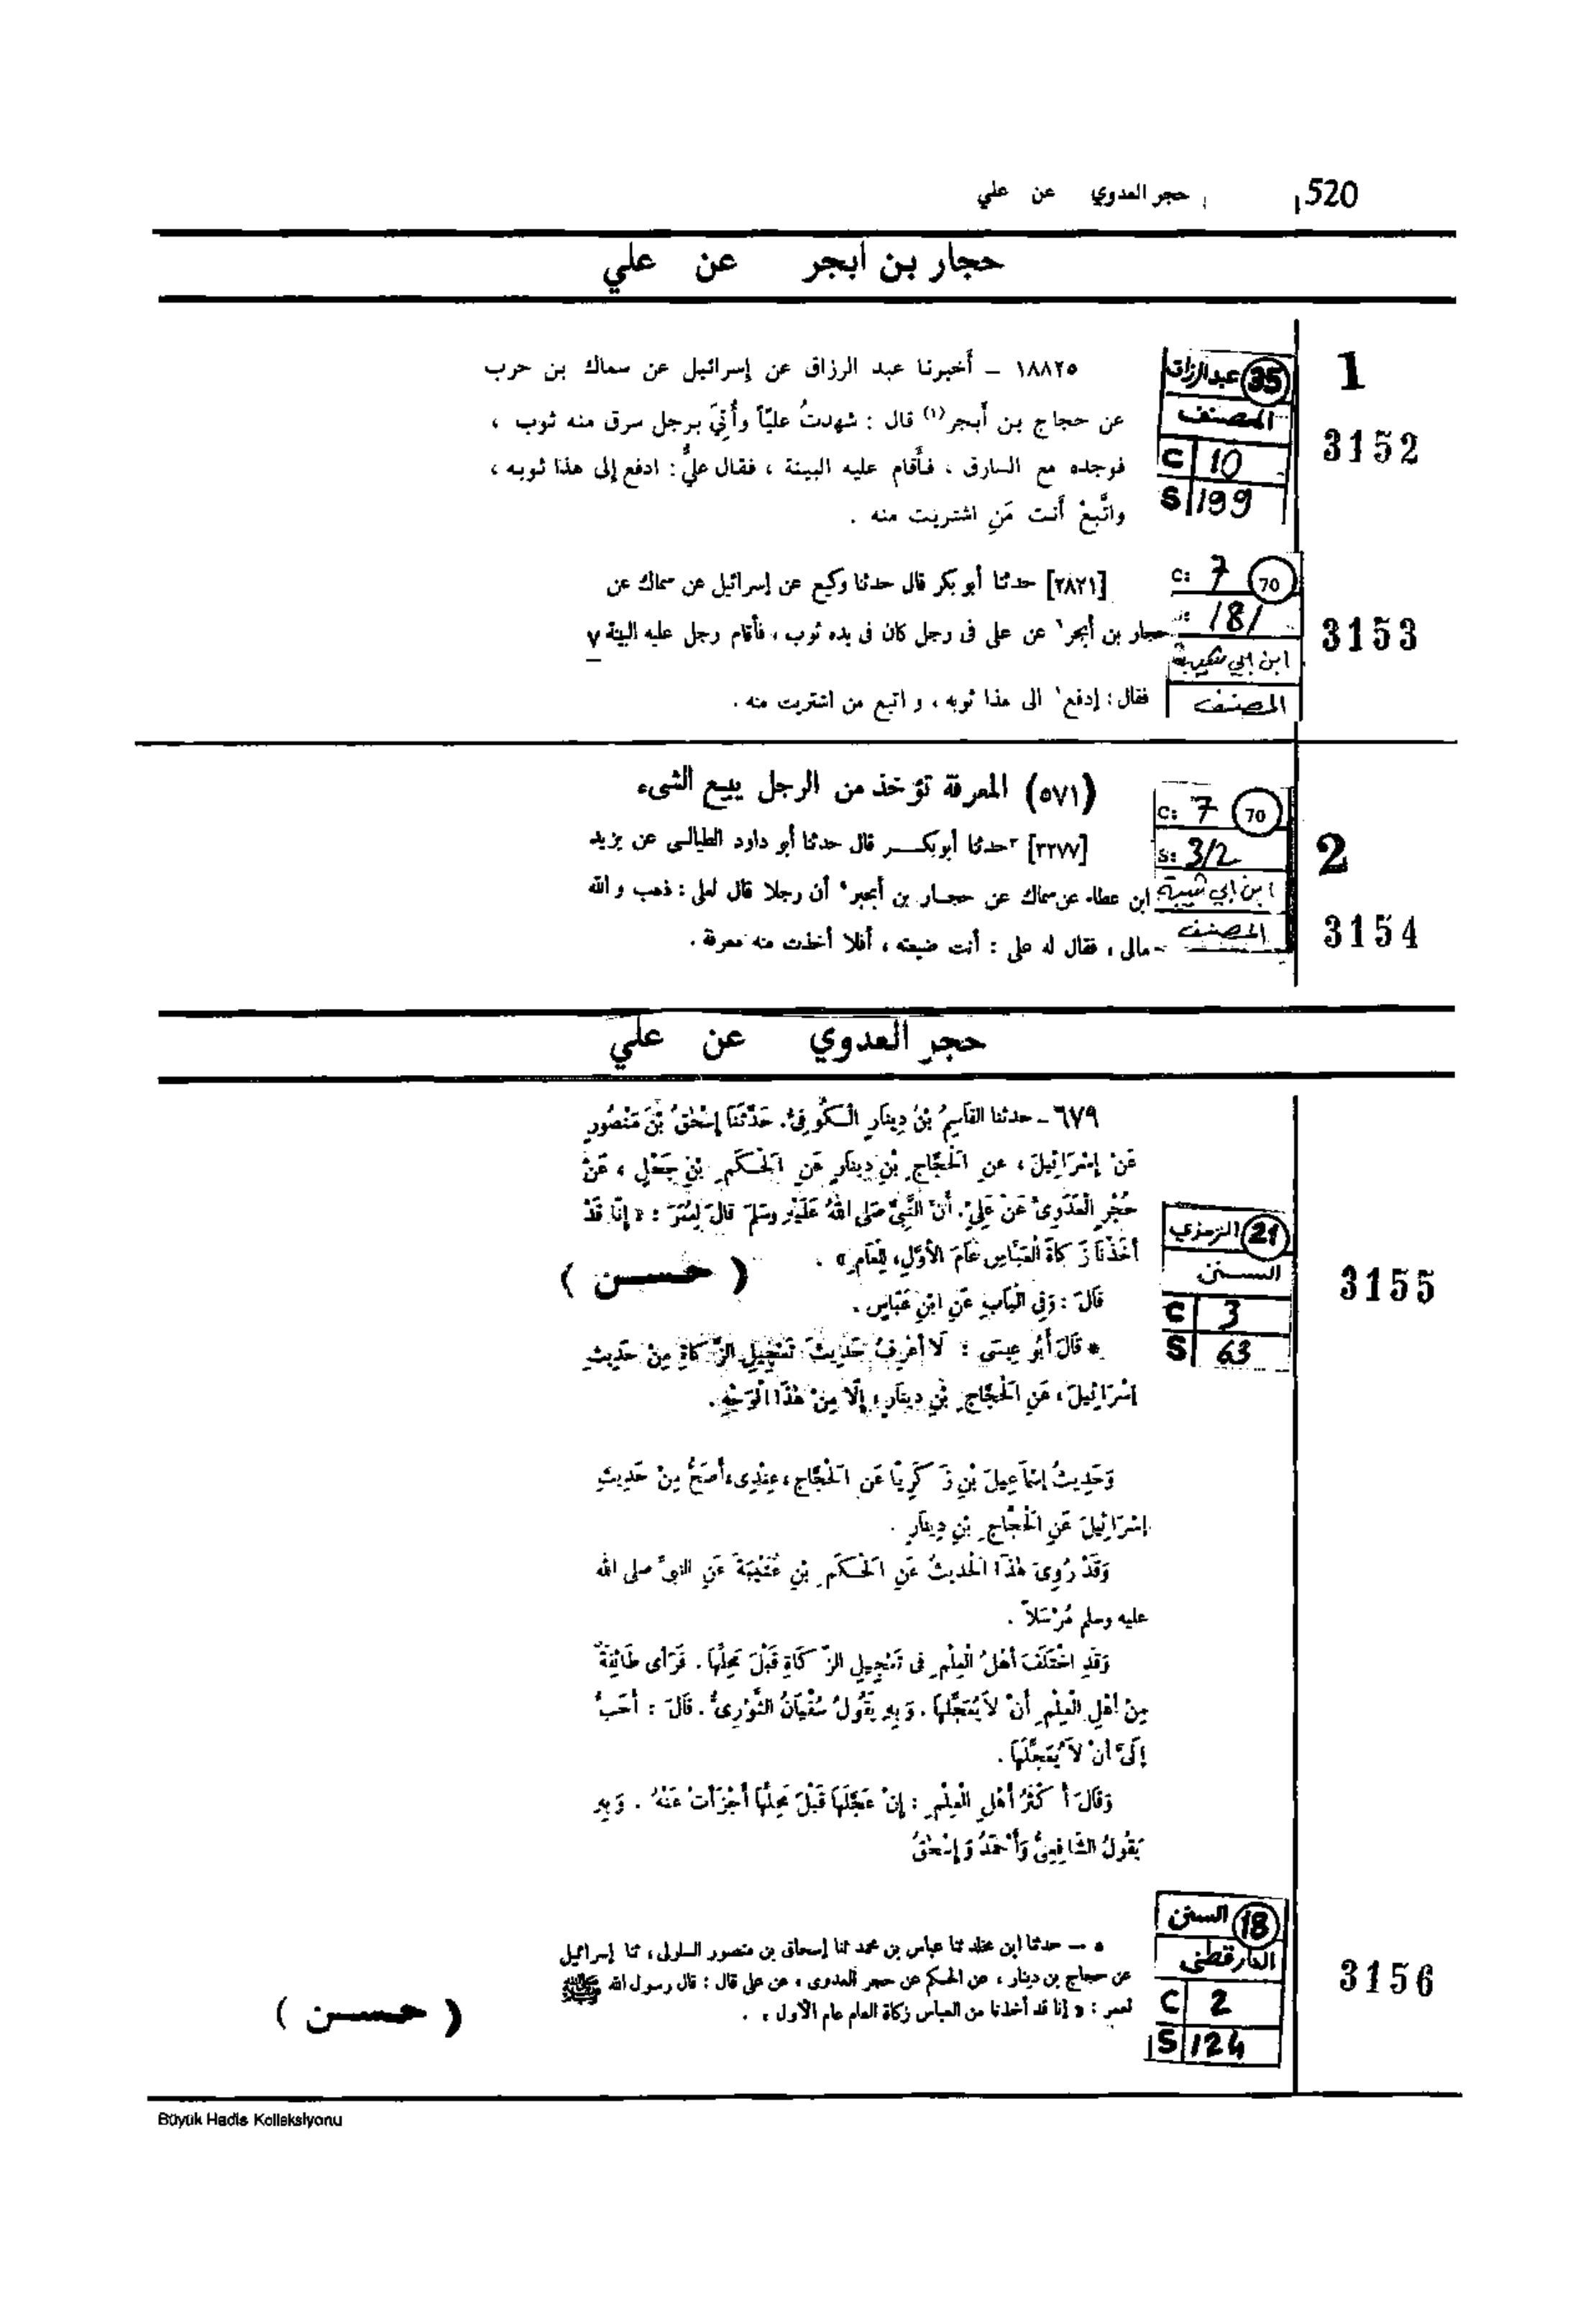 520
حجر العدوي عن علي
حجار بن ابجر عن علي
1
3152
35 عبدالرزاق
المصنف
C 10
S 199
١٨٨٢٥ – أخبرنا عبد الرزاق عن إسرائيل عن سماك بن حرب
عن حجاج بن أبجر(١) قال : شهدتُ عليّاً وأُتِيَ برجل سرق منه ثوب ،
فوجده مع السارق ، فأقام عليه البينة ، فقال عليٌّ : ادفع إلى هذا ثوبه ،
واتَّبِعْ أنت مَنِ اشتريت منه .
3153
C: 7 70
181
ابن ابي شيبة
المصنف
[٢٨٢١] حدثنا أبو بكر قال حدثنا وكيع عن إسرائيل عن سماك عن
حجار بن أبجر' عن على فى رجل كان فى يده ثوب ، فأقام رجل عليه البينة ٧
فقال : إدفع' الى هذا ثوبه ، و اتبع من اشتريت منه .
2
3154
C: 7 70
S: 312
ابن ابي شيبة
المصنف
(٥٧١) المعرفة تؤخذ من الرجل يبيع الشىء
[٣٢٧٧] حدثنا أبو بكر قال حدثنا أبو داود الطيالسى عن يزيد
ابن عطاء عن سماك عن حجار بن أبجر أن رجلا قال لعلى : ذهب والله
مالى ، فقال له على : أنت ضيعته ، أفلا أخذت منه معرفة .
حجر العدوي عن علي
3155
21 الترمذي
السنن
C 3
S 63
٦٧٩ – حدثنا القَاسِمُ بْنُ دِينَارٍ الْكُوفِىُّ. حَدَّثَنَا إِسْحٰقُ بْنُ مَنْصُورٍ
عَنْ إِسْرَائِيلَ ، عنِ الْحَجَّاجِ بْنِ دِينَارٍ عَنِ الْحَكَمِ بْنِ جَحْلٍ ، عَنْ
حُجْرٍ الْعَدَوِىِّ عَنْ عَلِىٍّ. أَنَّ النَّبِىَّ صَلى اللهُ عَلَيْهِ وسَلمَ قالَ لِعُمَرَ : « إِنّا قَدْ
أَخَذْنَا زَكَاةَ الْعَبَّاسِ عَامَ الأَوَّلِ، لِلْعَامِ» .
( حسن )
قَالَ : وَفِى الْبَابِ عَنِ ابْنِ عَبَّاسٍ .
* قَالَ أَبُو عِيسَى : لَا أَعْرِفُ حَدِيثَ تَعْجِيلِ الزَّكَاةِ مِنْ حَدِيثِ
إِسْرَائِيلَ ، عَنِ الْحَجَّاجِ بْنِ دِينَارٍ ، إِلَّا مِنْ هٰذَا الْوَجْهِ .
وَحَدِيثُ إِسْمَاعِيلَ بْنِ زَكَرِيَّا عَنِ الْحَجَّاجِ، عِنْدِى، أَصَحُّ مِنْ حَدِيثِ
إِسْرَائِيلَ عَنِ الْحَجَّاجِ بْنِ دِينَارٍ .
وَقَدْ رُوِىَ هٰذَا الْحديثُ عَنِ الْحَكَمِ بْنِ عُتَيْبَةَ عَنِ النبىِّ صلى الله
عليه وسلم مُرْسَلاً .
وَقَدِ اخْتَلَفَ أَهْلُ الْعِلْمِ فى تَعْجِيلِ الزَّكَاةِ قَبْلَ مَحِلِّهَا . فَرَأَى طَائِفَةٌ
مِنْ أَهْلِ الْعِلْمِ أَنْ لَا يُعَجِّلَهَا . وَبِهِ يَقُولُ سُفْيَانُ الثَّوْرِىُّ . قَالَ : أَحَبُّ
إِلَىَّ أَنْ لَا يُعَجِّلَهَا .
وَقَالَ أَكْثَرُ أَهْلِ الْعِلْمِ : إِنْ عَجَّلَهَا قَبْلَ مَحِلِّهَا أَجْزَأَتْ عَنْهُ . وَبِهِ
يَقُولُ الشَّافِعِىُّ وَأَحْمَدُ وَإِسْحٰقُ
3156
18 السنن
الدارقطني
C 2
S 124
٥ – حدثنا ابن مخلد ثنا عباس بن محمد ثنا إسحاق بن منصور السلولى ، ثنا إسرائيل
عن حجاج بن دينار ، عن الحكم عن حجر العدوى ، عن على قال : قال رسول الله ﷺ
لعمر : « إنا قد أخذنا من العباس زكاة العام عام الأول » .
( حسن )
Büyük Hadis Kolleksiyonu